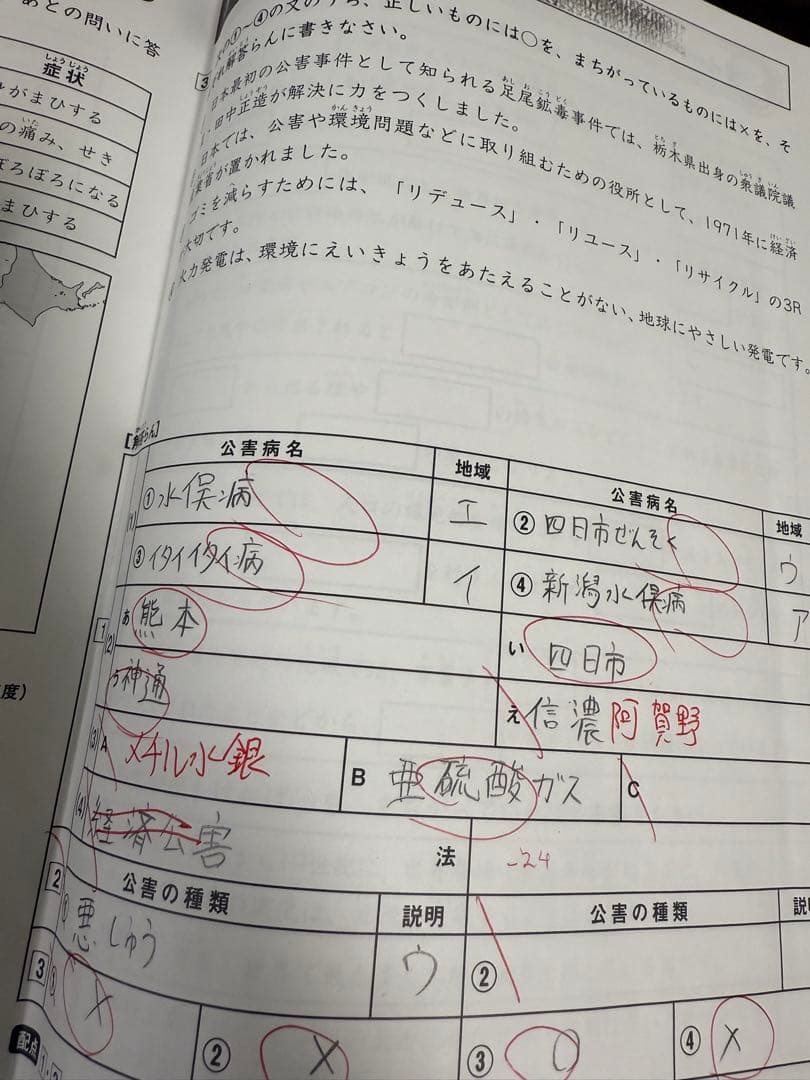 あとの問いに答
しょうじょう
症状
がまひする
の痛み、せき
ぼろぼろになる
まひする
度）
3
の①〜④の文のうち、正しいものには○を、まちがっているものには×を、そ
解答らんに書きなさい。
日本最初の公害事件として知られる足尾鉱毒事件では、栃木県出身の衆議院議
田中正造が解決に力をつくしました。
日本では、公害や環境問題などに取り組むための役所として、1971年に経済
省が置かれました。
ゴミを減らすためには、「リデュース」・「リユース」・「リサイクル」の3R
大切です。
火力発電は、環境にえいきょうをあたえることがない、地球にやさしい発電です。
［解答らん］
公害病名 地域 公害病名 地域
① 水俣病 エ ② 四日市ぜんそく ウ
③ イタイイタイ病 イ ④ 新潟水俣病 ア
1 (2) あ 熊本 い 四日市
う 神通 え 信濃 阿賀野
(3) A メチル水銀 B 亜硫酸ガス C
(4) 経済公害 法 -24
2 公害の種類 説明 公害の種類 説明
悪しゅう ウ ②
3 × ② × ③ ○ ④ ×
配点